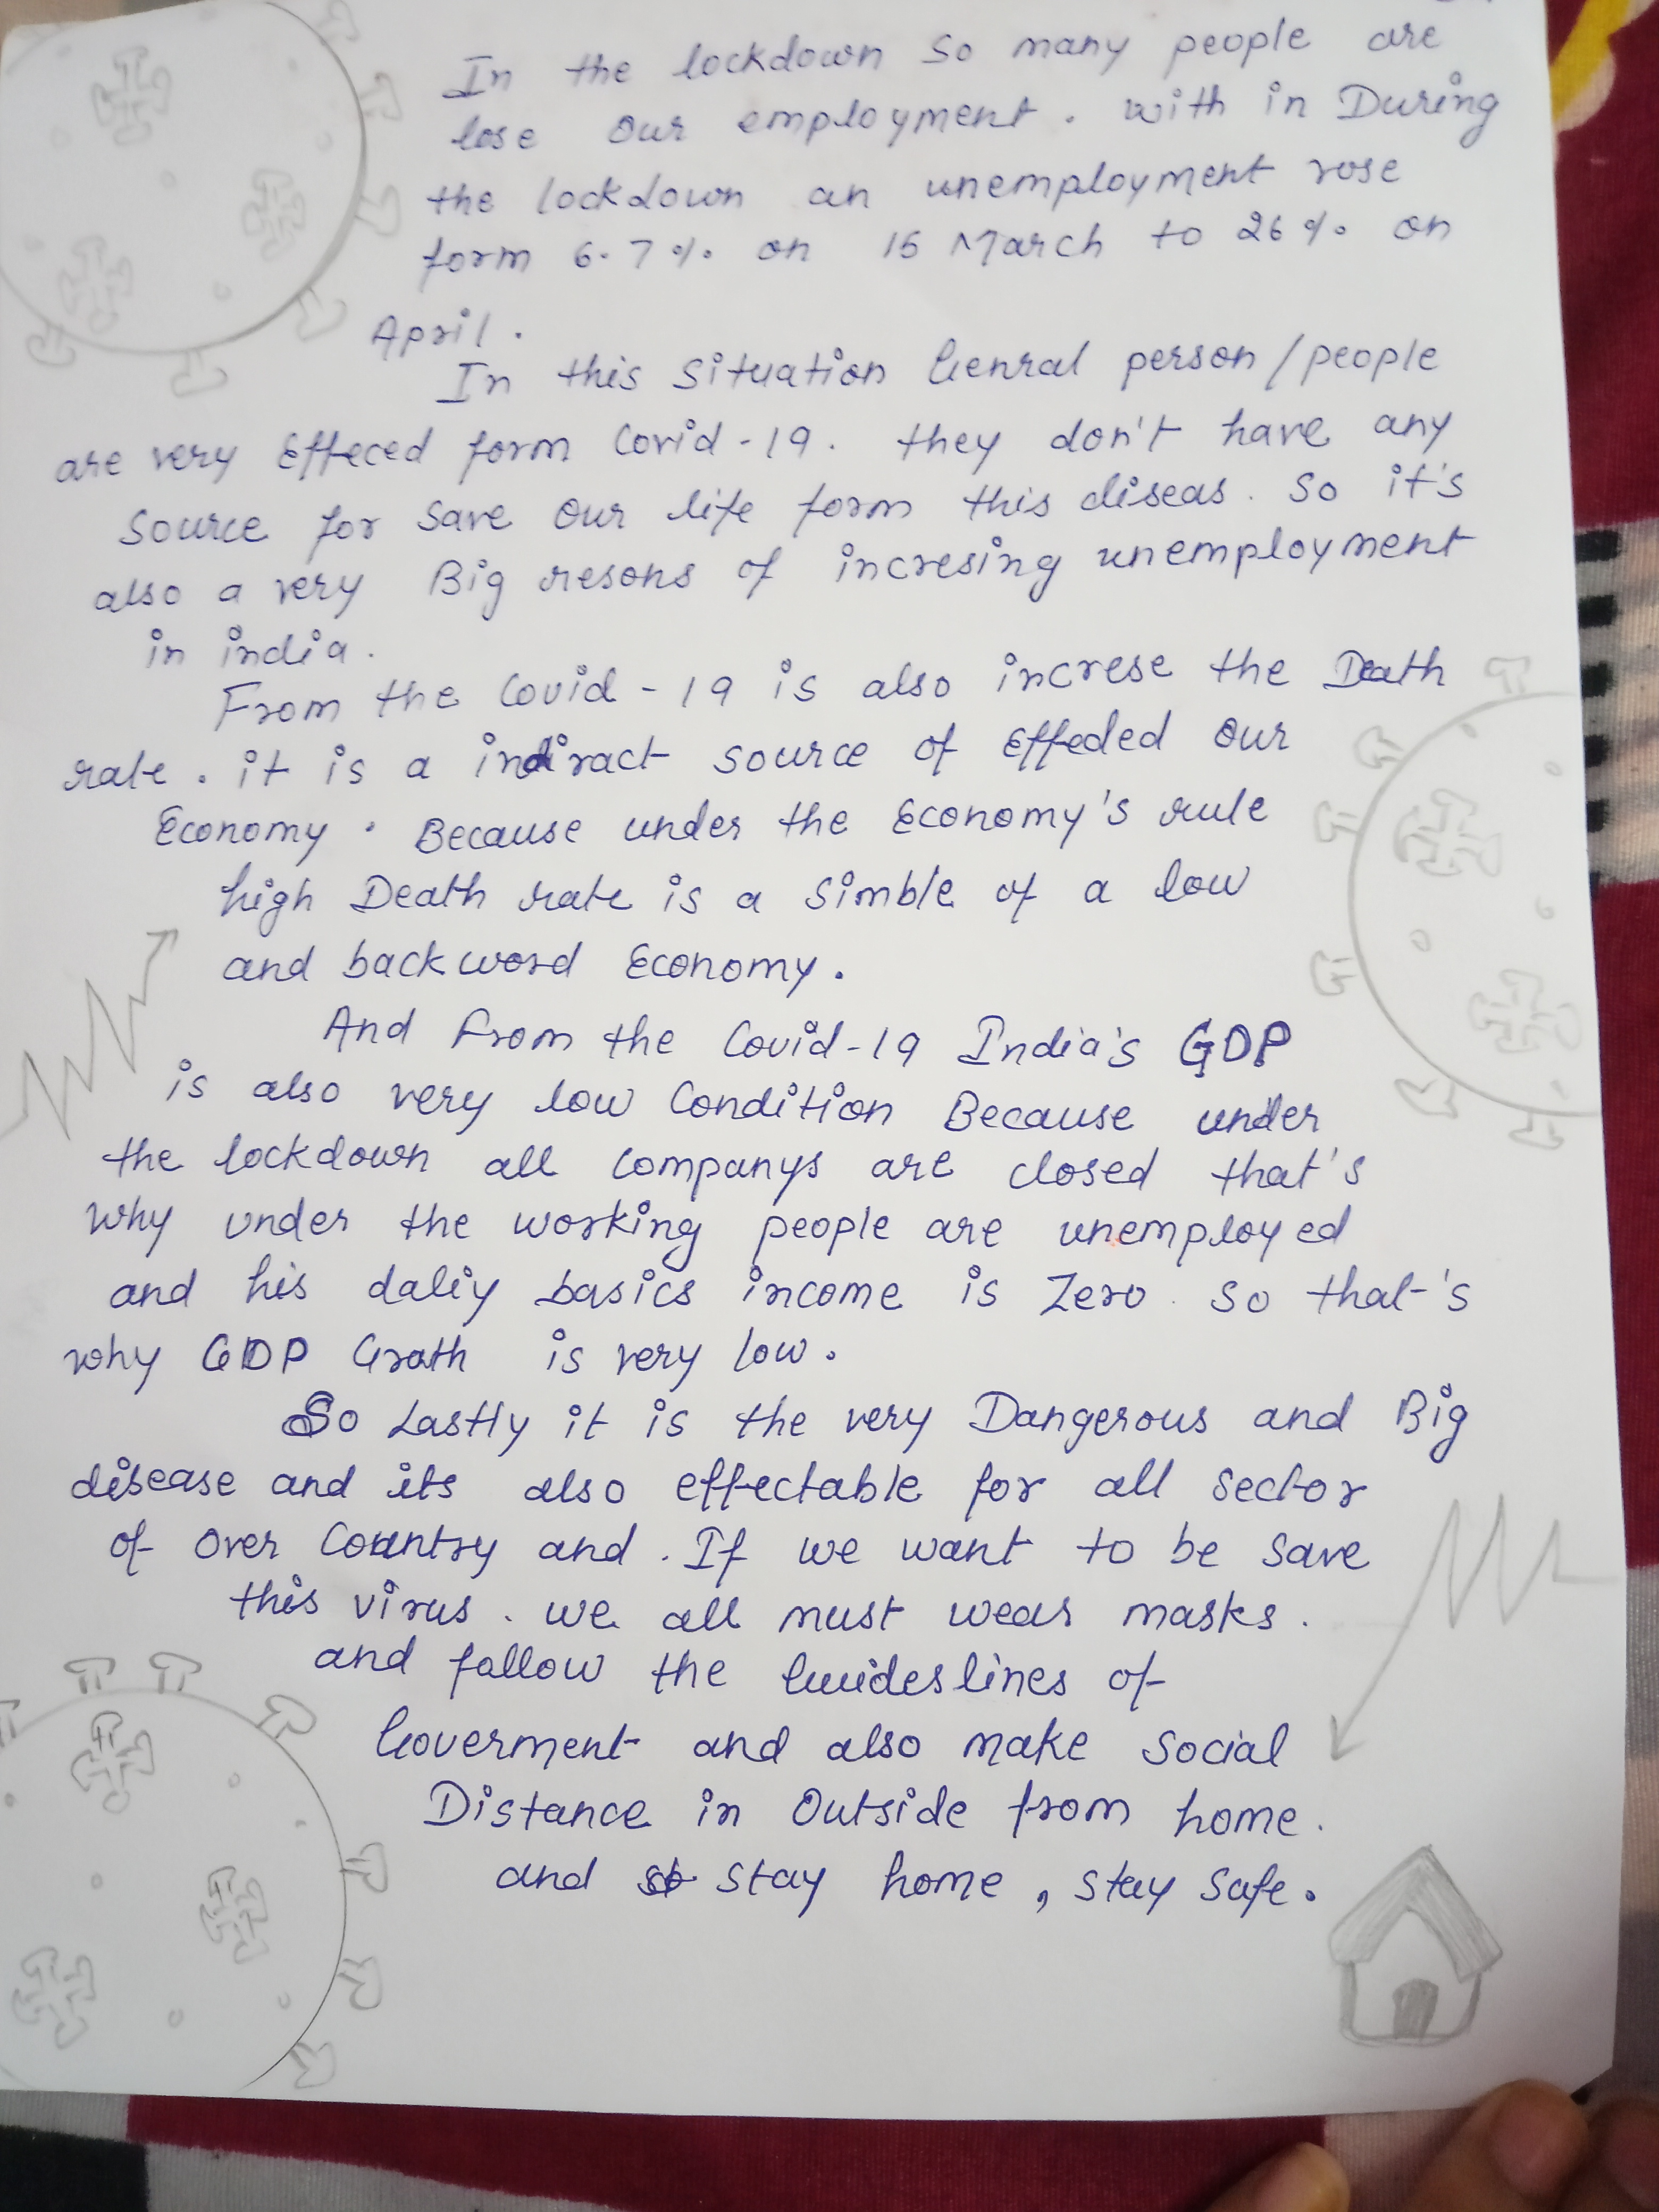 In the lockdown so many people are
lose our employment. with in During
the lockdown an unemployment rose
form 6.7% on 15 March to 26% on
April.
In this situation Genral person/people
are very Effeced form Covid-19. they don't have any
Source for Save our life form this diseas. So it's
also a very Big resons of incresing unemployment
in india.
From the Covid-19 is also increse the Death
rate. it is a indiract source of effeded our
Economy. Because under the Economy's rule
high Death rate is a Simble of a low
and backword Economy.
And From the Covid-19 India's GDP
is also very low Condition Because under
the lockdown all Companys are closed that's
why under the working people are unemployed
and his daliy basics income is Zero. So that's
why GDP Grath is very low.
So Lastly it is the very Dangerous and Big
disease and its also effectable for all sector
of over Country and. If we want to be save
this virus. we all must wear masks.
and follow the Guideslines of
Goverment and also make Social
Distance in Outside from home.
and stay home, stay safe.